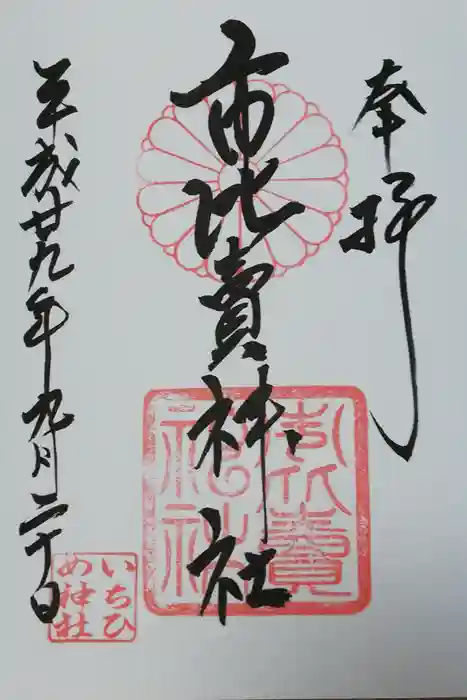 奉拝
市比賣神社
平成廿九年九月二十日
市比賣神社
いちひめ神社